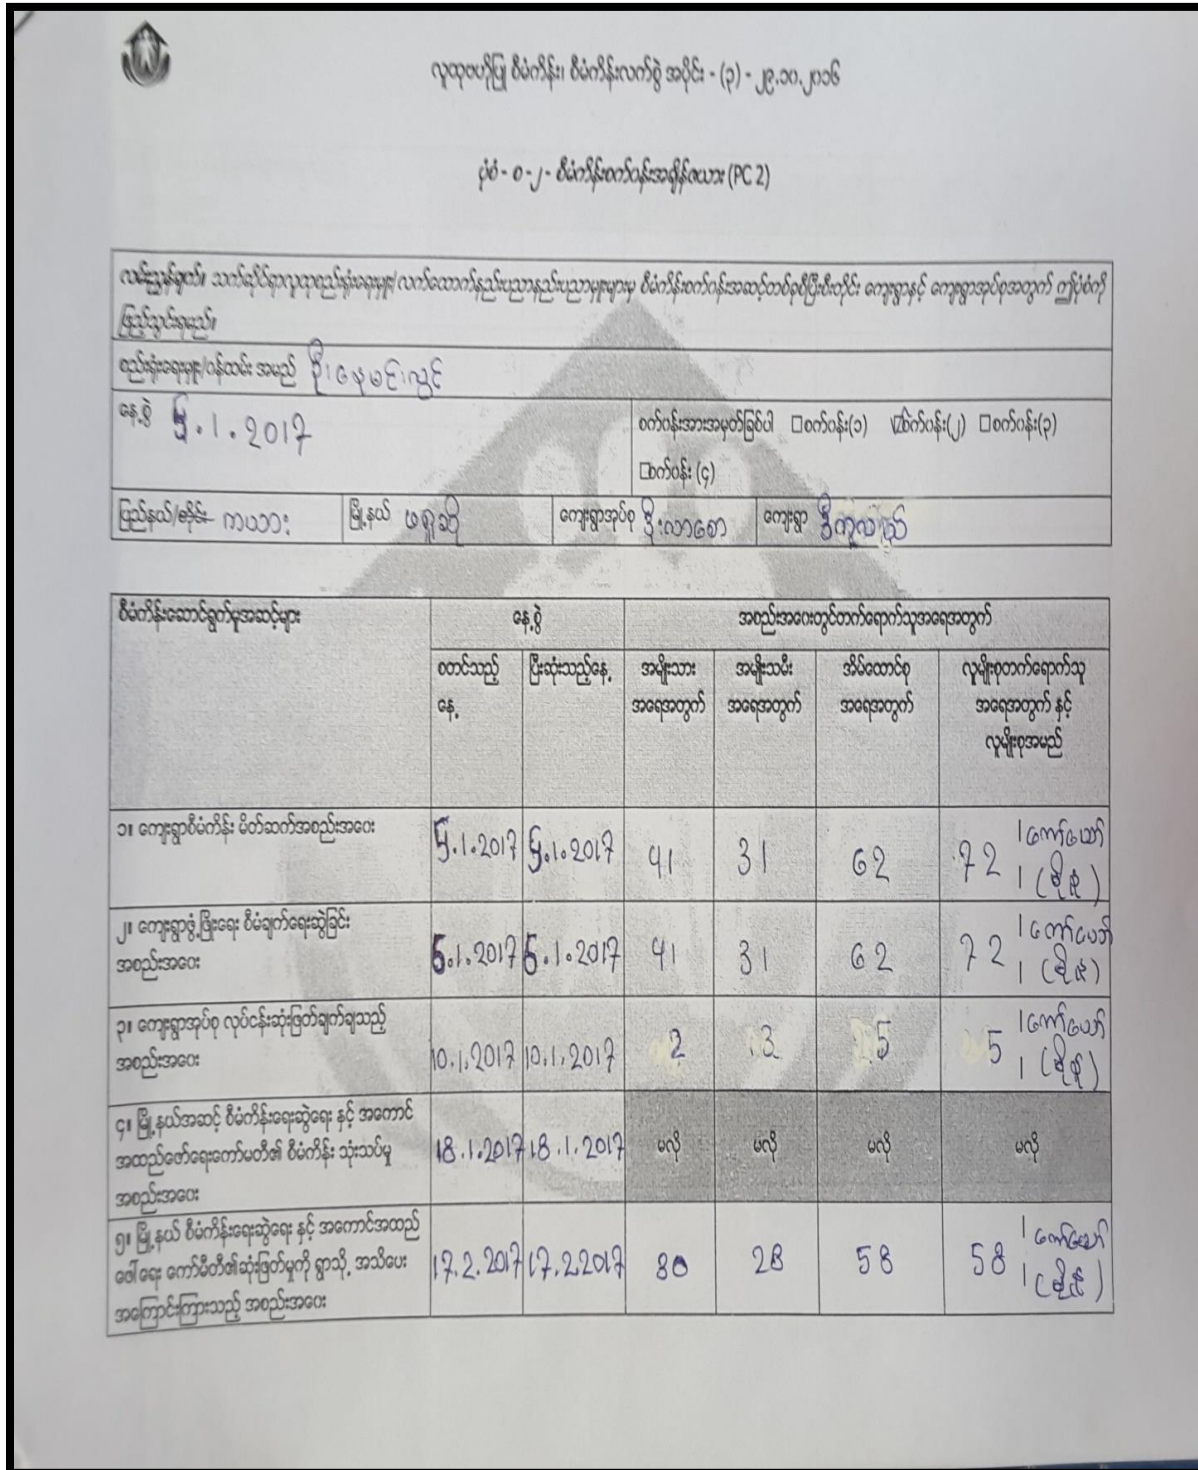 လူထုဗဟိုပြု စီမံကိန်း၊ စီမံကိန်းလက်စွဲ အပိုင်း - (၃) - ၂၉.၁၀.၂၀၁၆
ပုံစံ - ၀ - ၂ - စီမံကိန်းစက်ဝန်းအချိန်ဇယား (PC 2)
လမ်းညွှန်ချက်။ သက်ဆိုင်ရာလူထုစည်းရုံးရေးမှူး/လက်ထောက်နည်းပညာနည်းပညာမှူးများမှ စီမံကိန်းစက်ဝန်းအဆင့်တစ်ခုစီပြီးစီးတိုင်း ကျေးရွာနှင့် ကျေးရွာအုပ်စုအတွက် ဤပုံစံကို
ဖြည့်သွင်းရမည်။
စည်းရုံးရေးမှူး/ဝန်ထမ်း အမည် ဦးနေမင်းလွင်
နေ့စွဲ 5.1.2017
စက်ဝန်းအားအမှတ်ခြစ်ပါ □စက်ဝန်း(၁) ☑စက်ဝန်း(၂) □စက်ဝန်း(၃)
□စက်ဝန်း (၄)
ပြည်နယ်/တိုင်း ကယား မြို့နယ် ဖရူဆို ကျေးရွာအုပ်စု ဒိုးလာစော ကျေးရွာ
စီမံကိန်းဆောင်ရွက်မှုအဆင့်များ
နေ့စွဲ
အစည်းအဝေးတွင်တက်ရောက်သူအရေအတွက်
စတင်သည့်
နေ့
ပြီးဆုံးသည့်နေ့
အမျိုးသား
အရေအတွက်
အမျိုးသမီး
အရေအတွက်
အိမ်ထောင်စု
အရေအတွက်
လူမျိုးစုတက်ရောက်သူ
အရေအတွက် နှင့်
လူမျိုးစုအမည်
၁။ ကျေးရွာစီမံကိန်း မိတ်ဆက်အစည်းအဝေး
5.1.2017 5.1.2017 41 31 62 72
၂။ ကျေးရွာဖွံ့ဖြိုးရေး စီမံချက်ရေးဆွဲခြင်း
အစည်းအဝေး
6.1.2017 6.1.2017 41 31 62 72
၃။ ကျေးရွာအုပ်စု လုပ်ငန်းဆုံးဖြတ်ချက်ချသည့်
အစည်းအဝေး
10.1.2017 10.1.2017 2 3 5 5
၄။ မြို့နယ်အဆင့် စီမံကိန်းရေးဆွဲရေး နှင့် အကောင်
အထည်ဖော်ရေးကော်မတီ၏ စီမံကိန်း သုံးသပ်မှု
အစည်းအဝေး
18.1.2017 18.1.2017 မလို မလို မလို မလို
၅။ မြို့နယ် စီမံကိန်းရေးဆွဲရေး နှင့် အကောင်အထည်
ဖေါ်ရေး ကော်မီတီ၏ဆုံးဖြတ်မှုကို ရွာသို့ အသိပေး
အကြောင်းကြားသည့် အစည်းအဝေး
17.2.2017 17.2.2017 30 28 58 58